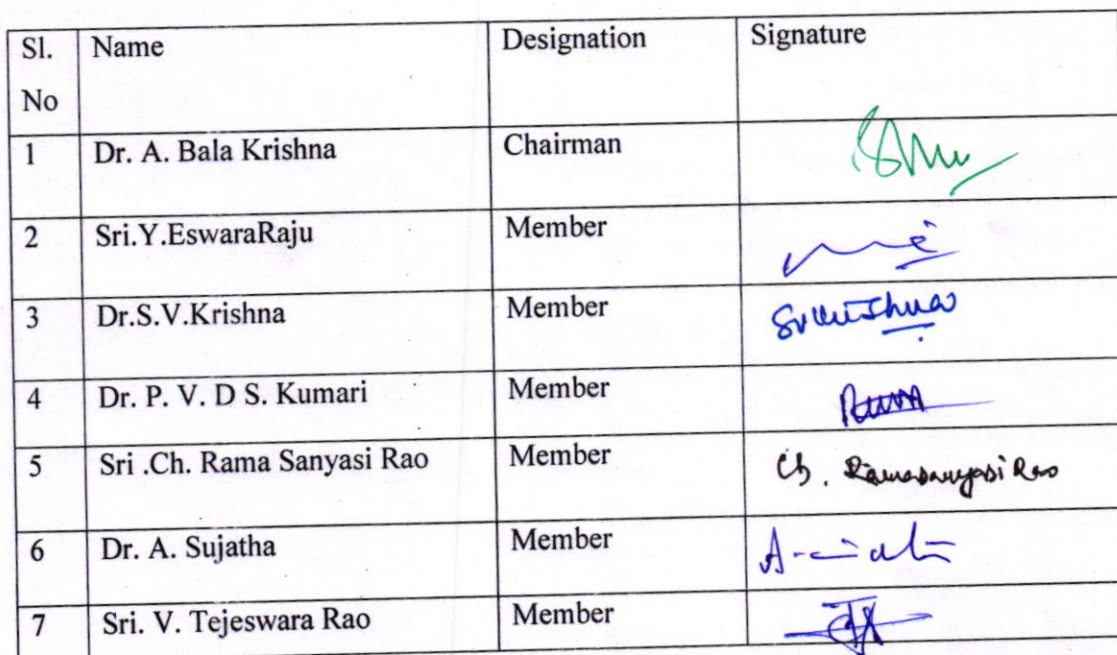 Sl. No Name Designation Signature
1 Dr. A. Bala Krishna Chairman
2 Sri.Y.EswaraRaju Member
3 Dr.S.V.Krishna Member
4 Dr. P. V. D S. Kumari Member
5 Sri .Ch. Rama Sanyasi Rao Member Ch. Ramasanyasi Rao
6 Dr. A. Sujatha Member
7 Sri. V. Tejeswara Rao Member